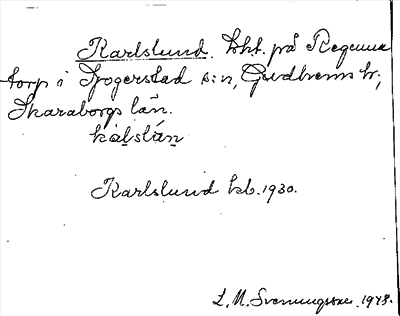 Karlslund. lht. på Regumatorp i Sjogerstad s:n, Gudhems hd,
Skaraborgs län.
kalslán
Karlslund kb. 1930.
L. M. Svenungsson. 1948.